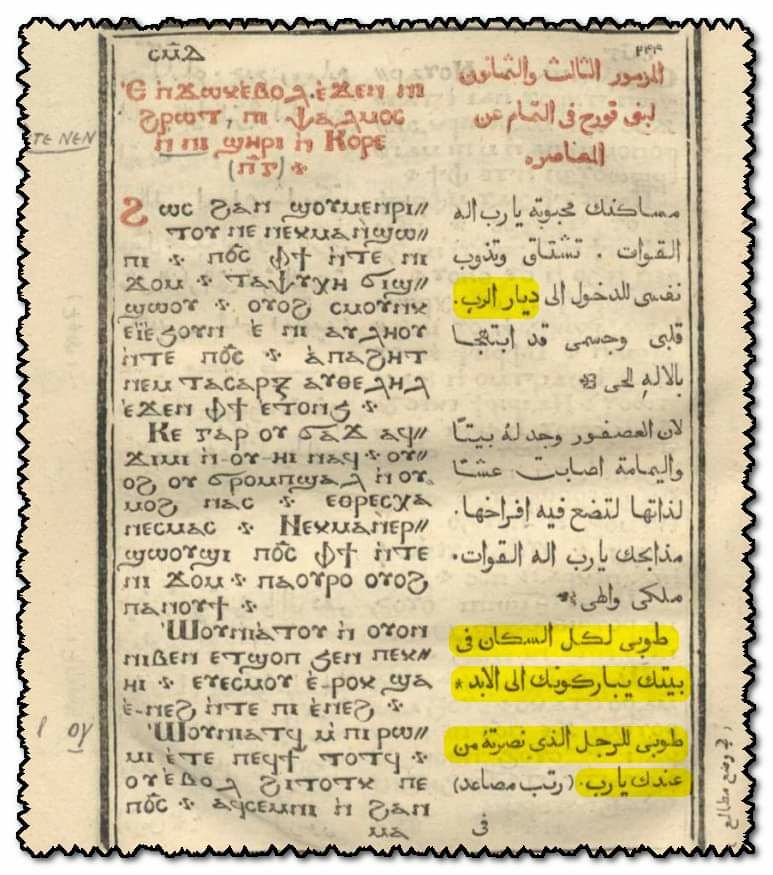 ⲥⲙ̅ⲇ
Ⲉ ⲡϫⲱⲕⲉⲃⲟⲗ ⲉ̀ϫⲉⲛ ⲛⲓ
ϩⲣⲱⲧ, ⲡⲓ ⲯⲁⲗⲙⲟⲥ
ⲛ̀ ⲛⲓ ϣⲏⲣⲓ ⲛ̀ Ⲕⲟⲣⲉ
(ⲡ̅ⲅ)
Ϩⲱⲥ ϩⲁⲛ ϣⲟⲩⲙⲉⲛⲣⲓ〃
ⲧⲟⲩ ⲛⲉ ⲛⲉⲕⲙⲁⲛ̀ϣⲱ〃
ⲡⲓ · ⲡϭ̅ⲥ ⲫϯ ⲛ̀ⲧⲉ ⲛⲓ
ϫⲟⲙ · ⲧⲁⲯⲩⲭⲏ ϭⲓϣ
ϣⲱⲟⲩ · ⲟⲩⲟϩ ⲥⲙⲟⲩⲛⲕ
ⲉⲓ̈ⲉϧⲟⲩⲛ ⲉ̀ ⲛⲓ ⲁⲩⲗⲏⲟⲩ
ⲛ̀ⲧⲉ ⲡϭ̅ⲥ · ⲁ̀ⲡⲁϩⲏⲧ
ⲛⲉⲙ ⲧⲁⲥⲁⲣⲝ ⲁⲩⲑⲉⲗⲏⲗ
ⲉ̀ϫⲉⲛ ⲫϯ ⲉⲧⲟⲛϧ ·
Ⲕⲉ ⲅⲁⲣ ⲟⲩ ϭⲁϫ ⲁϥ〃
ϫⲓⲙⲓ ⲛ̀-ⲟⲩ-ⲏⲓ ⲛⲁϥ · ⲟⲩ〃
ⲟϩ ⲟⲩ ϭⲣⲟⲙⲡϣⲁⲗ ⲛ̀ ⲟⲩ
ⲙⲟϩ ⲛⲁⲥ · ⲉⲑⲣⲉⲥⲭⲁ
ⲛⲉⲥⲙⲁⲥ · Ⲛⲉⲕⲙⲁⲛⲉⲣ〃
ϣⲱⲟⲩϣⲓ ⲡϭ̅ⲥ ⲫϯ ⲛ̀ⲧⲉ
ⲛⲓ ϫⲟⲙ · ⲡⲁⲟⲩⲣⲟ ⲟⲩⲟϩ
ⲡⲁⲛⲟⲩϯ ·
Ⲱⲟⲩⲛⲓⲁ̀ⲧⲟⲩ ⲛ̀ ⲟⲩⲟⲛ
ⲛⲓⲃⲉⲛ ⲉⲧϣⲟⲡ ϧⲉⲛ ⲡⲉⲕ〃
ⲏⲓ · ⲉⲩⲉⲥⲙⲟⲩ ⲉ̀-ⲣⲟⲕ ϣⲁ
ⲉ̀-ⲛⲉϩ ⲛ̀ⲧⲉ ⲡⲓ ⲉ̀ⲛⲉϩ ·
Ⲱⲟⲩⲛⲓⲁⲧϥ ⲙ̀ ⲡⲓⲣⲱ〃
ⲙⲓ ⲉ̀ⲧⲉ ⲡⲉϥϯ ⲧⲟⲧϥ ·
ⲟⲩⲉ̀ⲃⲟⲗ ϩⲓⲧⲟⲧⲕ ⲡⲉ
ⲡϭ̅ⲥ · ⲁϥⲥⲉⲙⲛⲓ ⲛ̀ ϩⲁⲛ
ⲙⲁ
٢٤٤
المزمور الثالث والثمانون
لبنى قورح فى التمام عن
المعاصره
مساكنك محبوبة يارب اله
القوات . تشتاق وتذوب
نفسى للدخول الى ديار الرب .
قلبى وجسمى قد ابتهجا
بالاله الحى
لان العصفور وجد له بيتا
واليمامة اصابت عشا
لذاتها لتضع فيه افراخها .
مذابحك يارب اله القوات .
ملكى والهى
طوبى لكل السكان فى
بيتك يباركونك الى الابد *
طوبى للرجل الذى نصرته من
عندك يارب . (رتب مصاعد)
فى
ⲧⲉ ⲛⲉⲛ